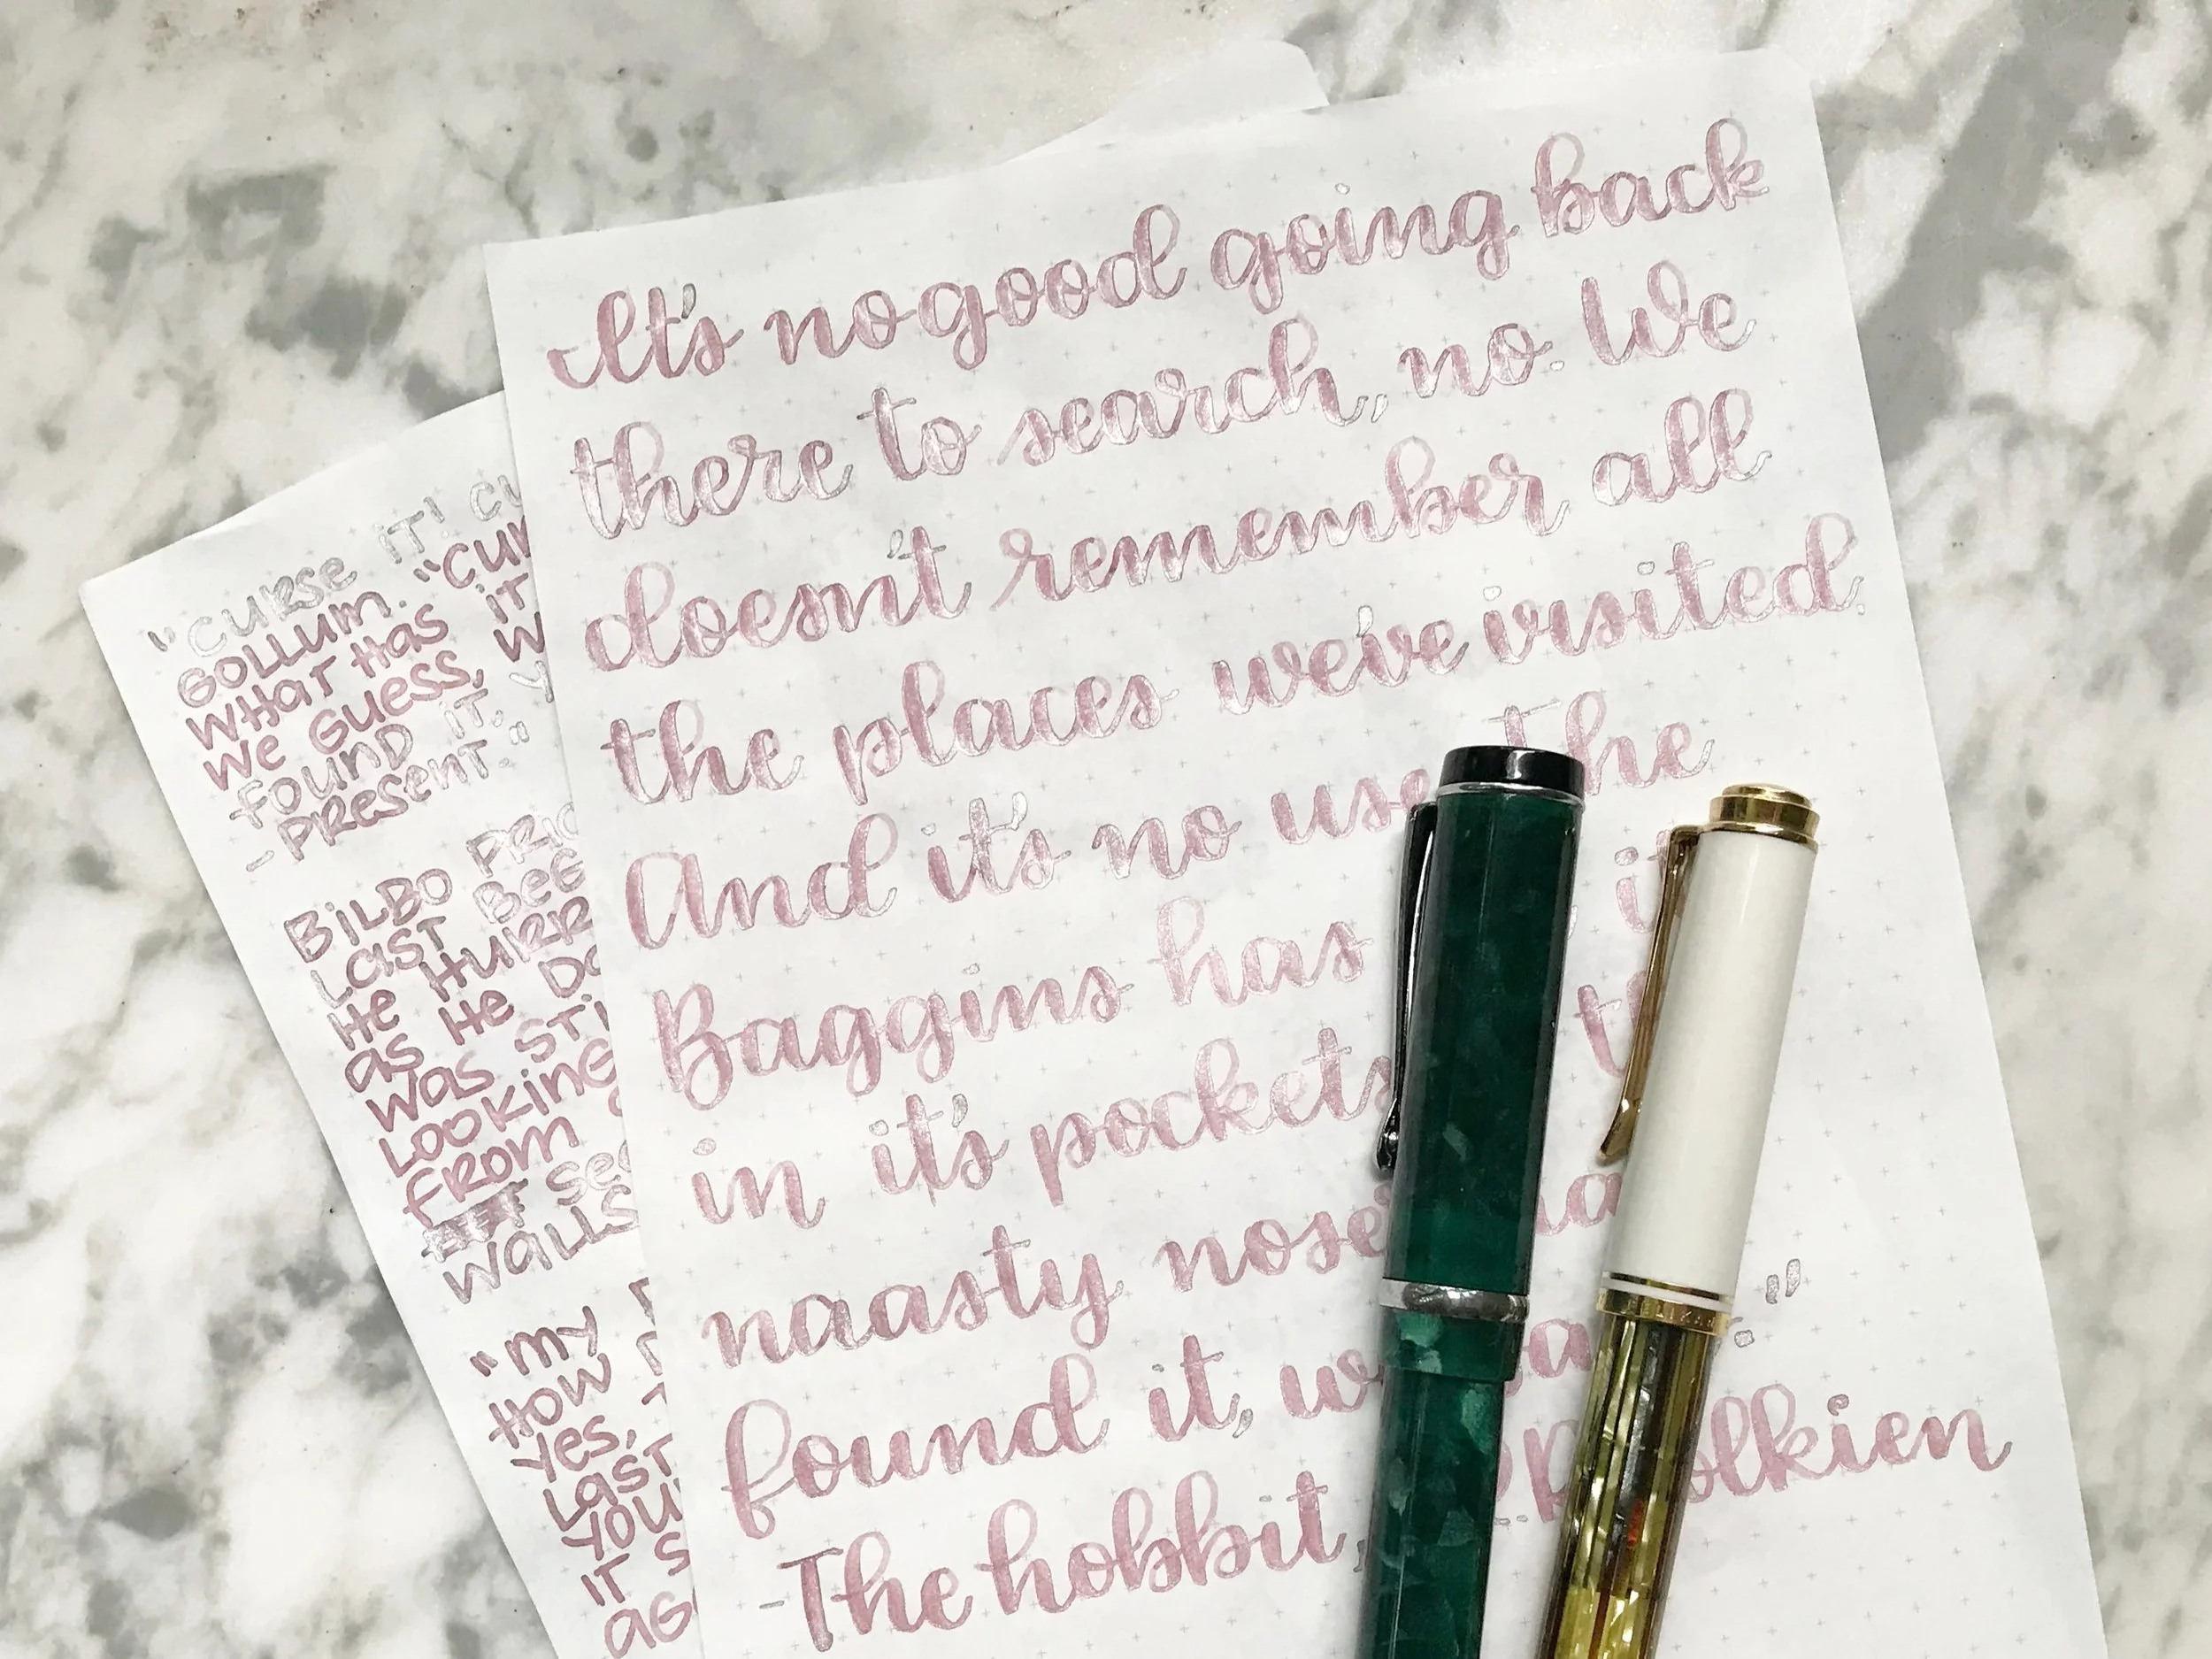 "CURSE IT!
GOLLUM. "CUR
WHAT HAS IT
WE GUESS,
FOUND IT,
-PRESENT."
BILBO PRIC
LAST BEE
HE HURR
AS HE DO
WAS STI
LOOKING
FROM
SEE
WALLS
"MY
HOW
YES,
LAST
YOU
IT S
AG
It's no good going back
there to search, no. We
doesn't remember all
the places we've visited.
And it's no use. The
Baggins has
in it's pockets
naasty nose
found it,
-The hobbit, Tolkien